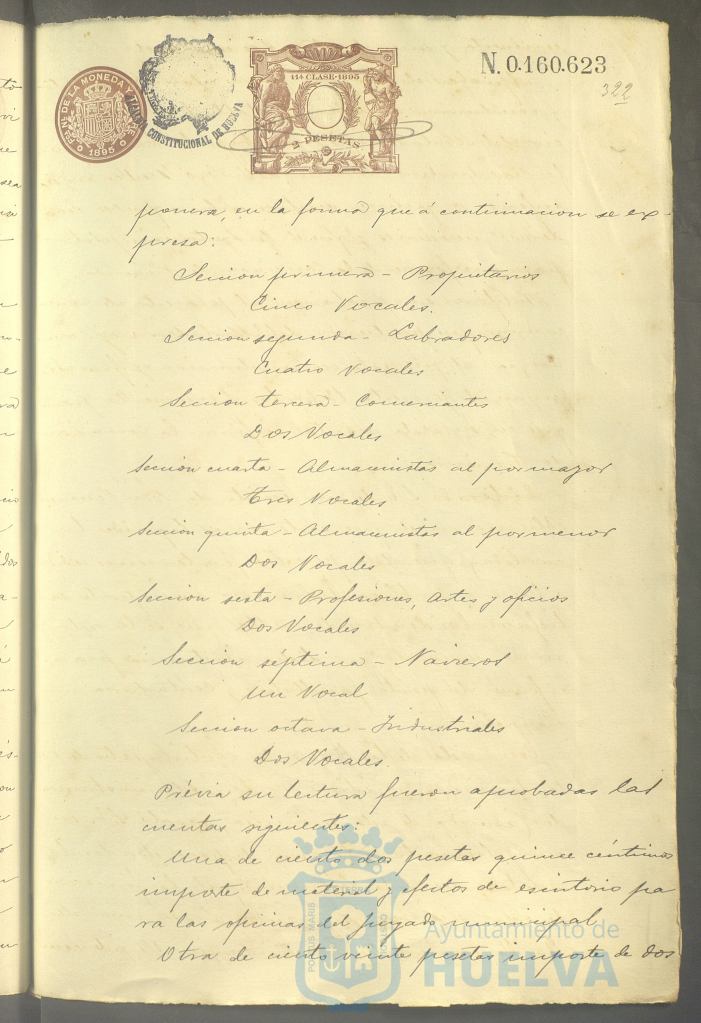 N. 0.160.623
322
11ª CLASE-1895
2 PESETAS
CONSTITUCIONAL DE HUELVA
1895
ponera, en la forma que á continuacion se ex-
presa:
Seccion primera - Propietarios
Cinco Vocales.
Seccion segunda - Labradores
Cuatro Vocales
Seccion tercera - Comerciantes
Dos Vocales
Seccion cuarta - Almacenistas al por mayor
Tres Vocales
Seccion quinta - Almacenistas al por menor
Dos Vocales
Seccion sesta - Profesiones, Artes y oficios
Dos Vocales
Seccion séptima - Navieros
Un Vocal
Seccion octava - Industriales
Dos Vocales.
Prévia su lectura fueron aprobadas las
cuentas siguientes:
Una de ciento dos pesetas quince céntimos
importe de material y efectos de escritorio pa
ra las oficinas del juzgado municipal,
Otra de ciento veinte pesetas importe de dos
Ayuntamiento de
HUELVA